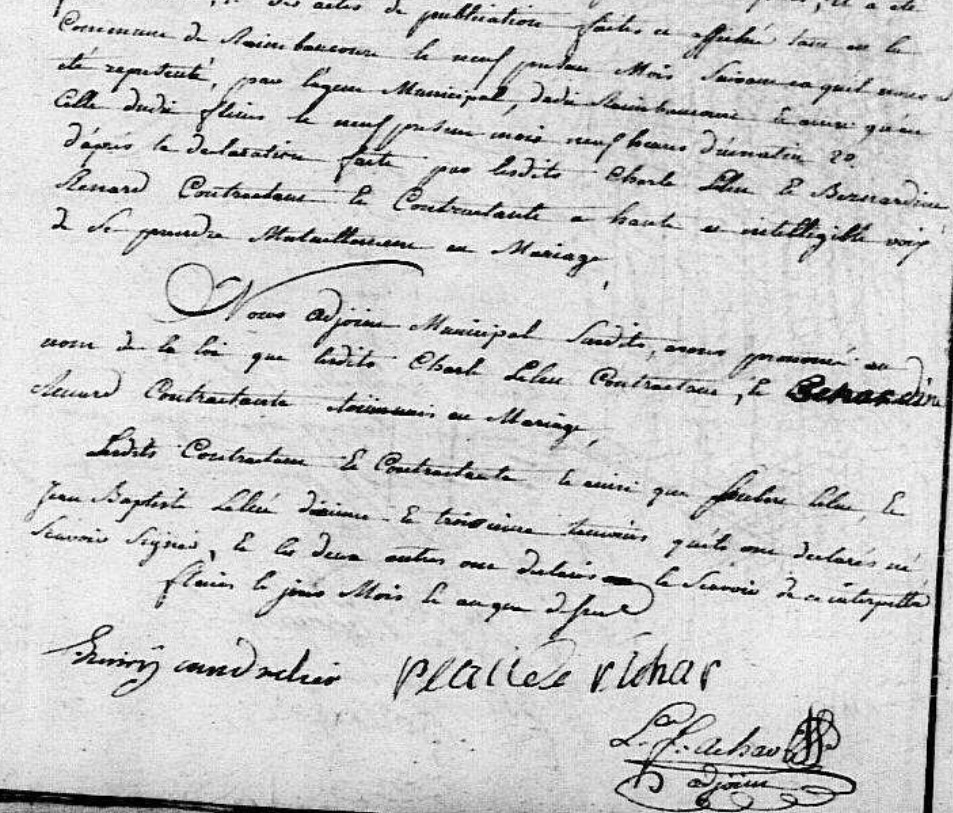 des actes de publication faites et affiché tant en la
Commune de Raimbaucour le neuf present Mois suivant ce quil nous a
été representé, par l'agent Municipal, dudit Raimbaucour Et ainsi qu'en
Celle dudit flines le neuf present mois neuf heures du matin 2o
d'après la declaration faite par lesdits Charle Leleu Et Bernardine
Renard Contractant Et Contractante a haute et intelligible voix
de Se prendre Mutuellement en Mariage,
Nous adjoint Municipal Susdits, avons prononcé au
nom de la loi que lesdits Charle Leleu Contractant, Et Bernardine
Renard Contractante sont unis en Mariage,
Lesdits Contractant Et Contractante Et ainsi que Leleu, Et
Jean Baptiste Leleu deuxieme Et troisieme temoins qu'ils ont declarés né
Scavoir Signer, Et les deux autres ont declarés le Scavoir de ce interpellé
flines le jour Mois Et an que dessus
placide richar
L. f. adjoint